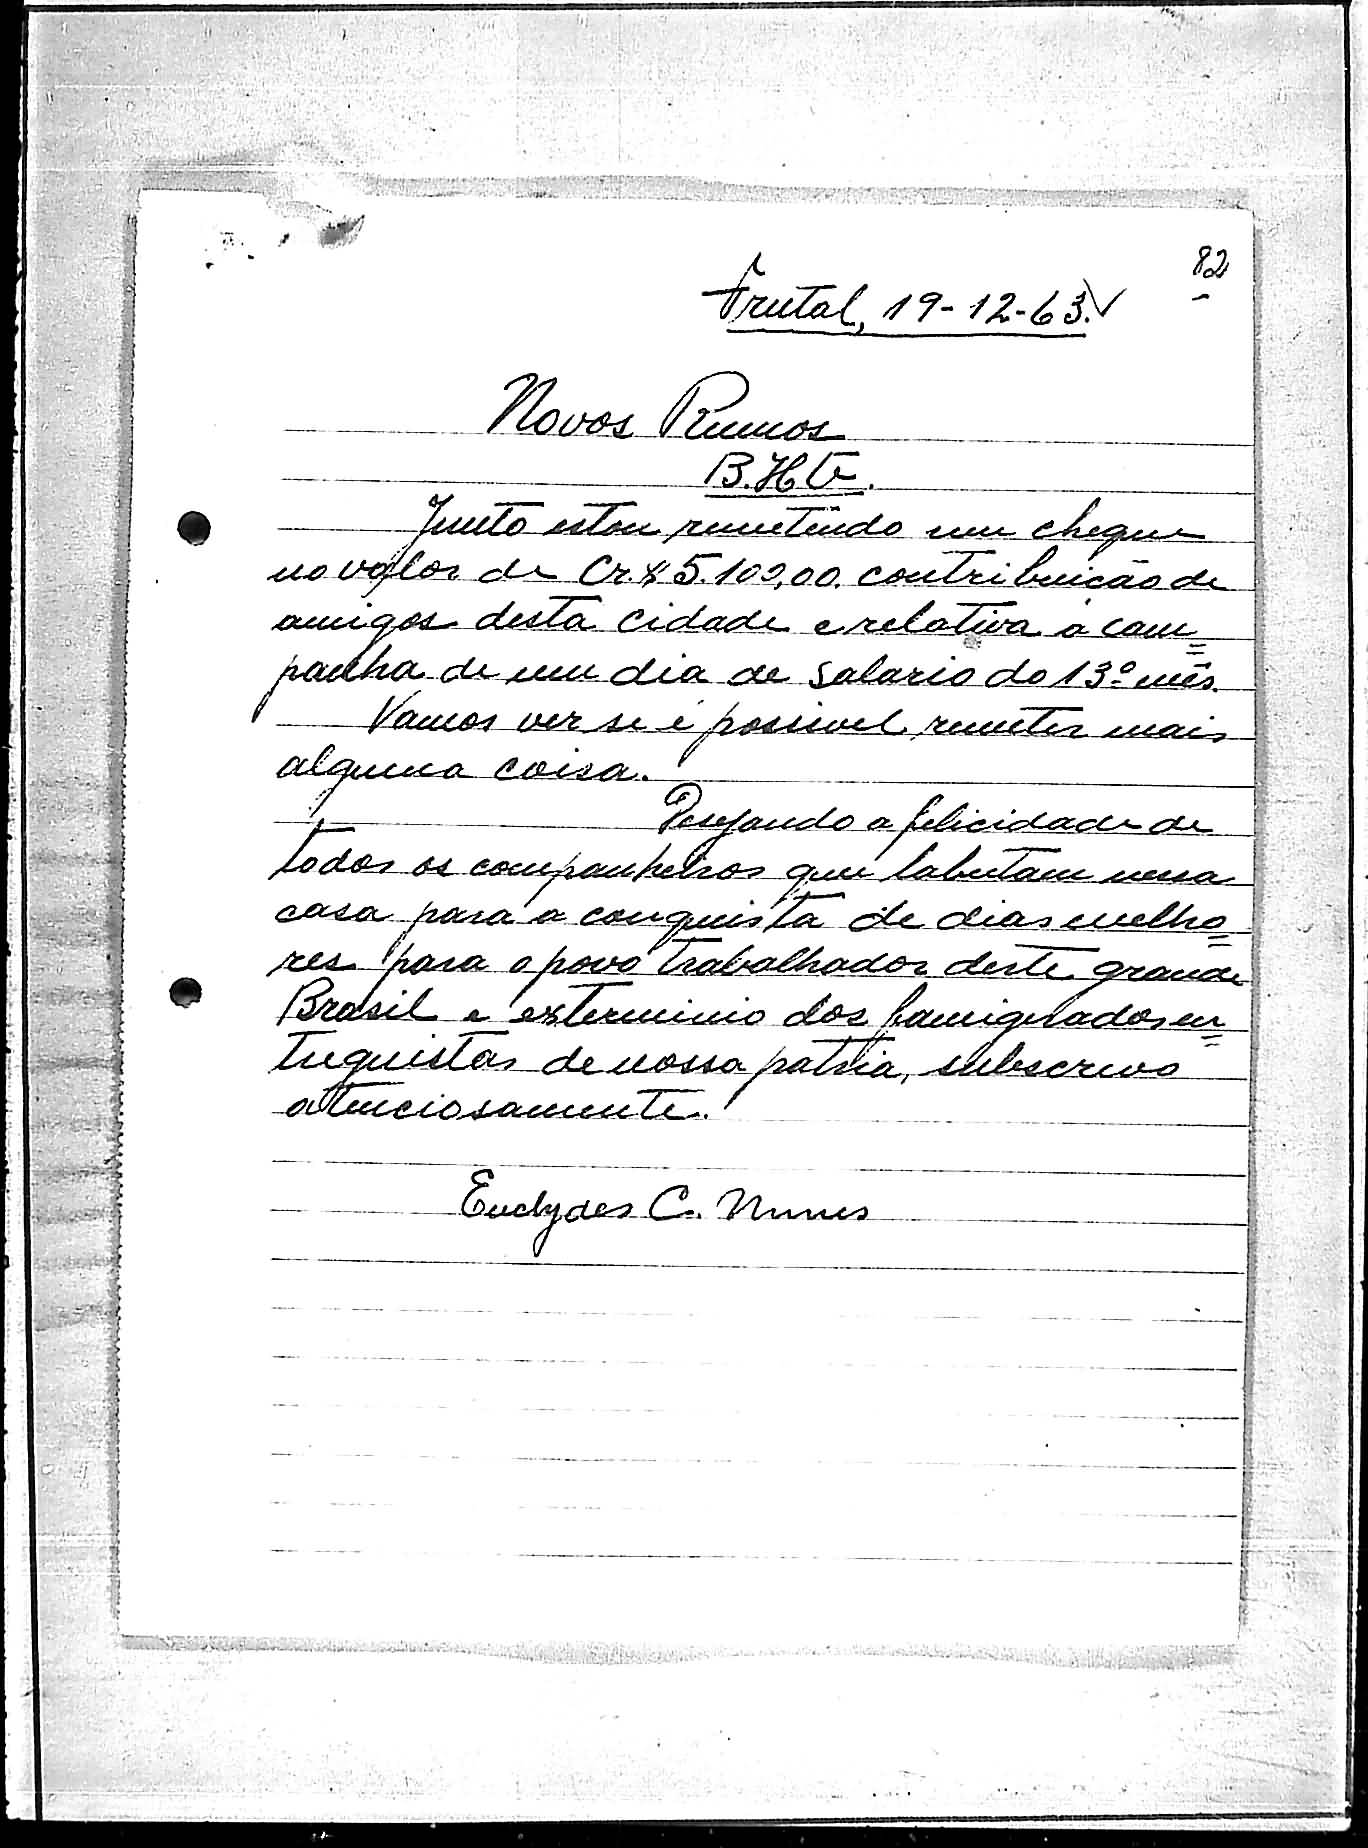 82
Frutal, 19-12-63.
Novos Rumos
B. Hte.
Junto estou remetendo um cheque
no valor de Cr.$ 5.100,00. contribuição de
amigos desta cidade e relativa a cam=
panha de um dia de salario do 13º mês.
Vamos ver se é possivel remeter mais
alguma coisa.
Desejando a felicidade de
todos os companheiros que labutam nessa
casa para a conquista de dias melho=
res para o povo trabalhador deste grande
Brasil e exterminio dos famigerados en=
treguistas de nossa patria, subscrevo
atenciosamente.
Euclydes C. Nunes